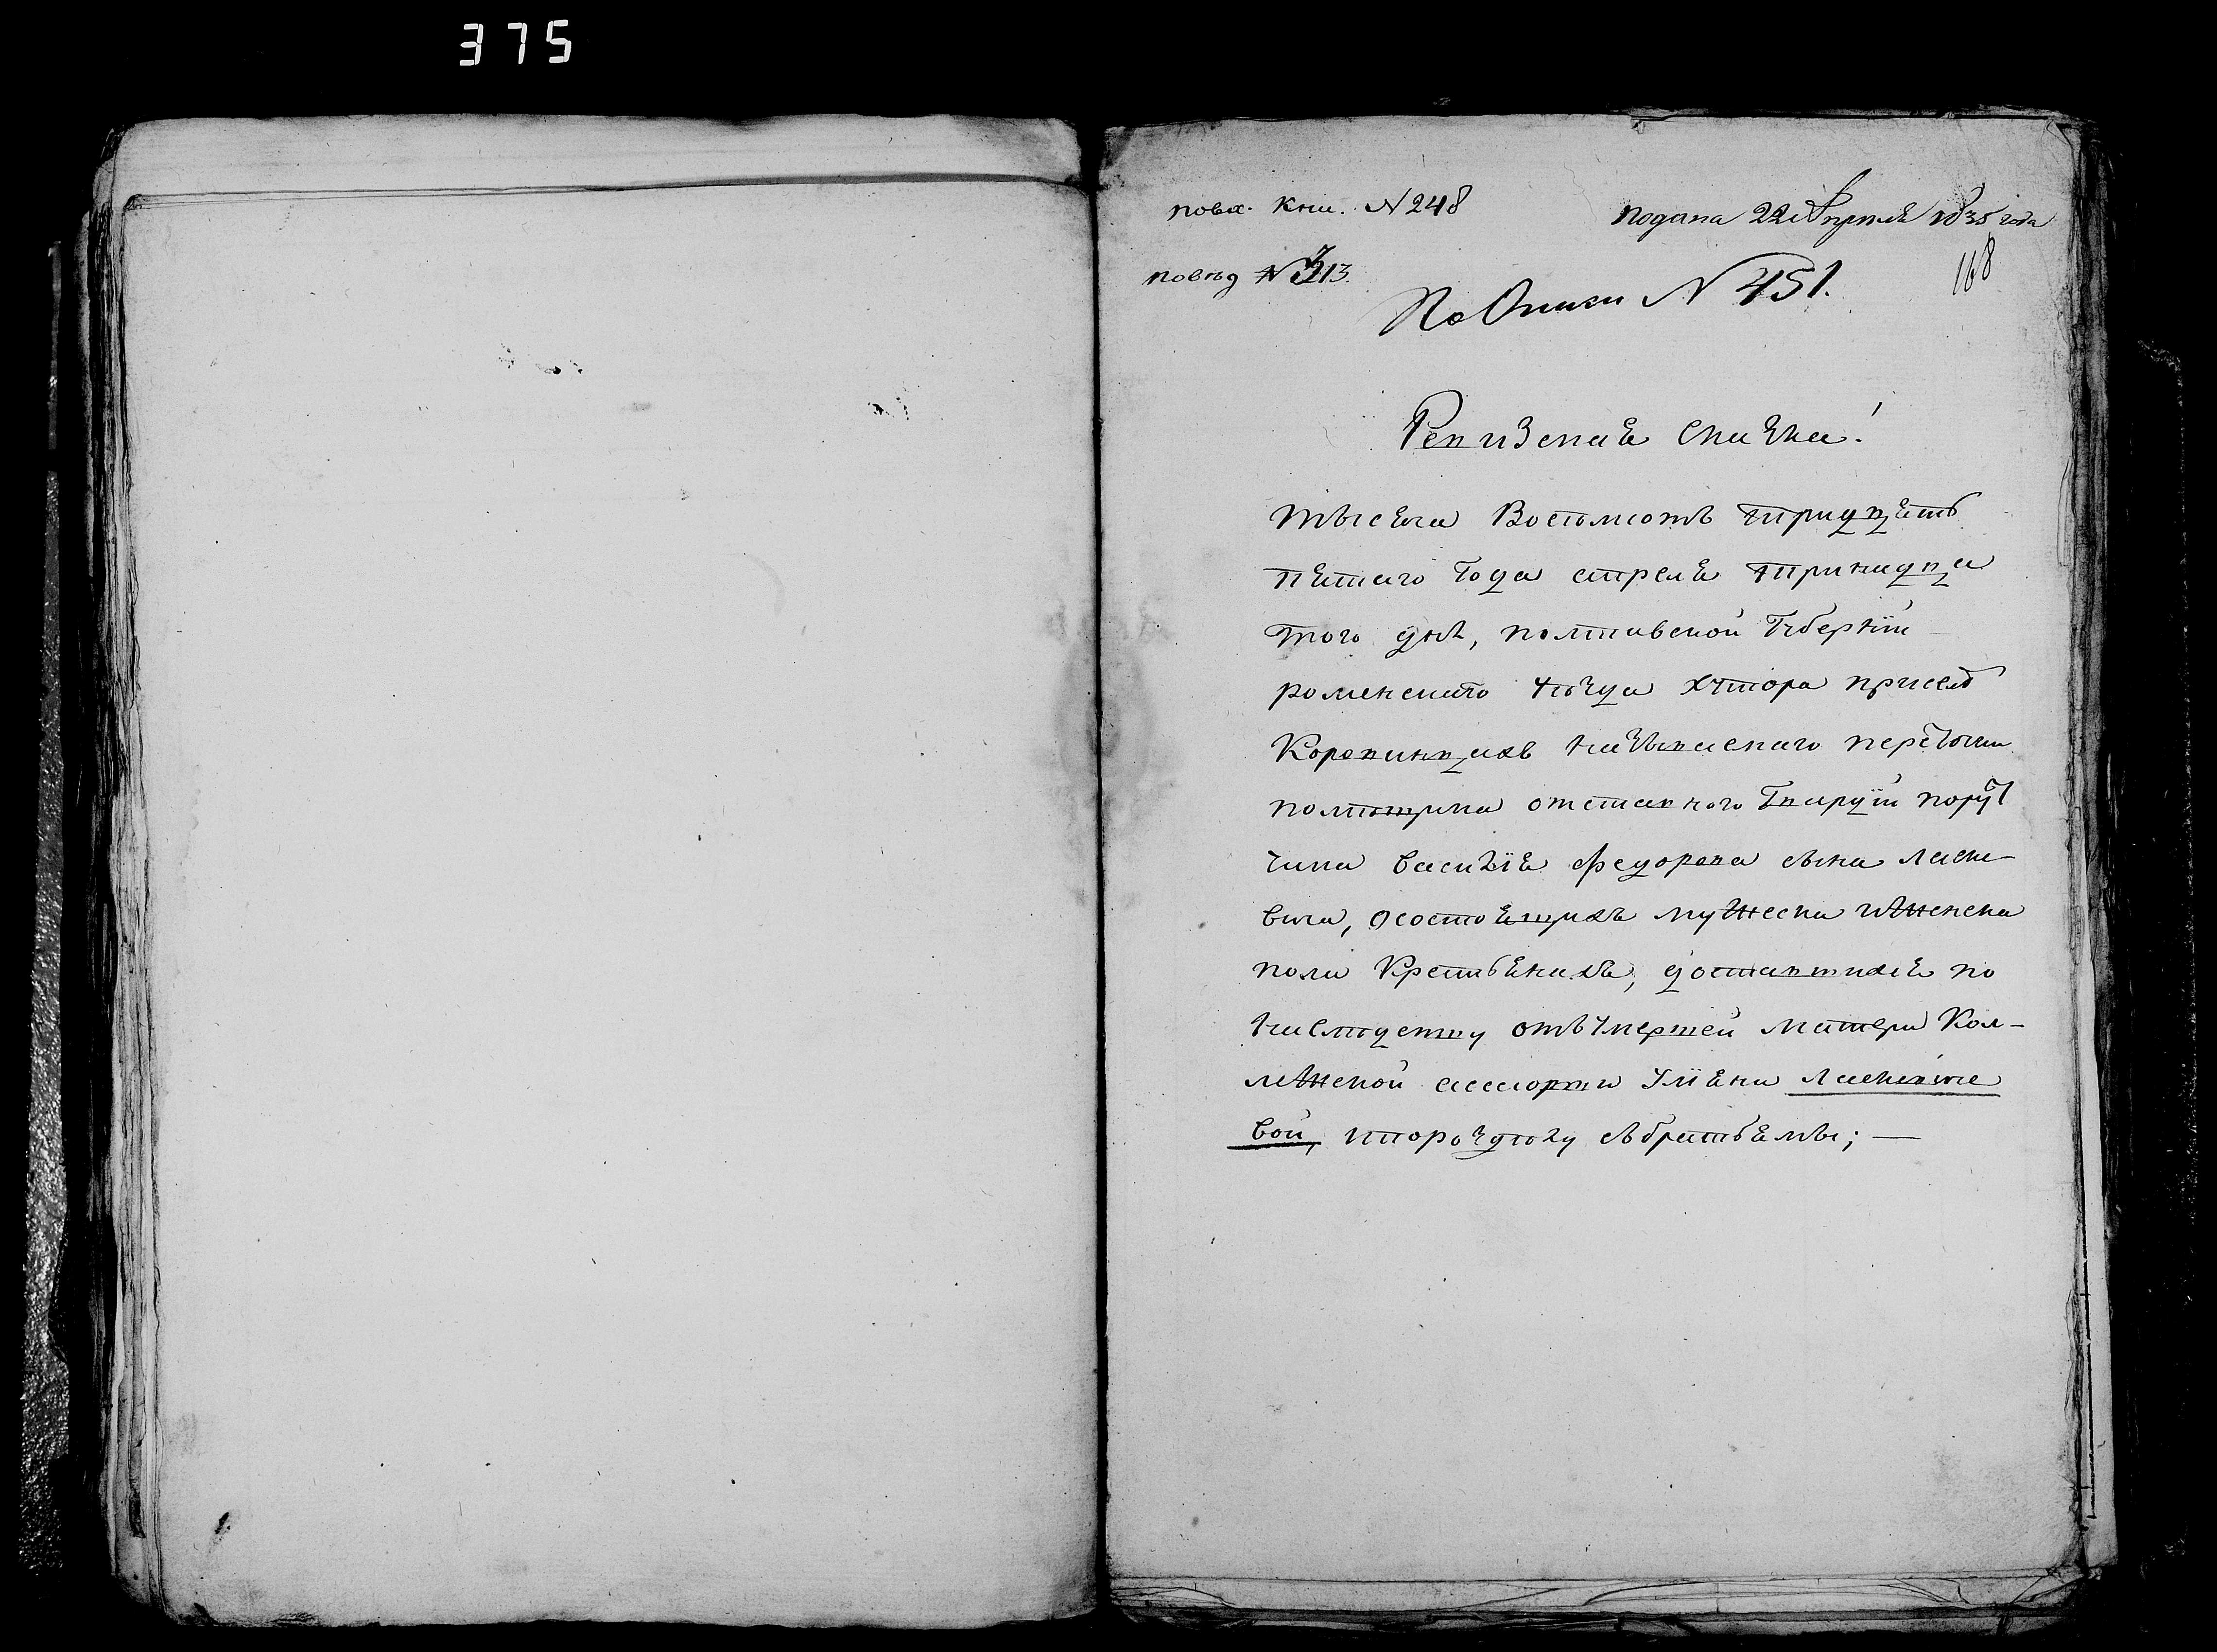 375
по вх. кни. № 248
подана 22 Апреля 1835 года
по вѣд № 313.
168
По Описи № 451.
Ревизская Сказка.
тысеча Восемсотъ тридцять
пятаго Года апреля тринадца
того дня, полтавской Гˀбернїи
роменского повѣда хутора присел
Коровинцахъ называемаго
отставного Гвардїи пору
чика Василїя Федорова сына Лаке-
вича, о состоящихъ мужеска и женска
пола Крестьянахъ, доставшихся по
наслѣдству отъ умершей матери Кол-
лежской асессорши Улїяны
вой, в раздѣлу съ братьями; —